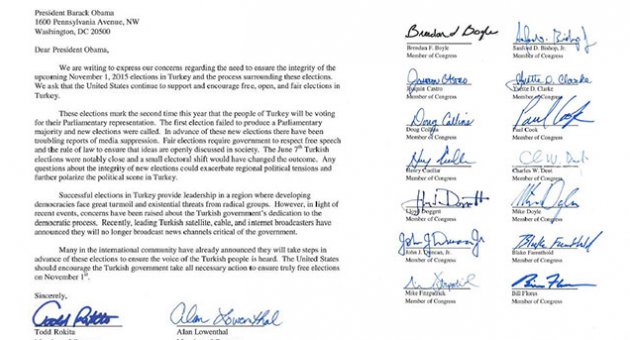 President Barack Obama
1600 Pennsylvania Avenue, NW
Washington, DC 20500
Dear President Obama,
We are writing to express our concerns regarding the need to ensure the integrity of the
upcoming November 1, 2015 elections in Turkey and the process surrounding these elections.
We ask that the United States continue to support and encourage free, open, and fair elections in
Turkey.
These elections mark the second time this year that the people of Turkey will be voting
for their Parliamentary representation. The first election failed to produce a Parliamentary
majority and new elections were called. In advance of these new elections there have been
troubling reports of media suppression. Fair elections require government to respect free speech
and the rule of law to ensure that ideas are openly discussed in society. The June 7th Turkish
elections were notably close and a small electoral shift would have changed the outcome. Any
questions about the integrity of new elections could exacerbate regional political tensions and
further polarize the political scene in Turkey.
Successful elections in Turkey provide leadership in a region where developing
democracies face great turmoil and existential threats from radical groups. However, in light of
recent events, concerns have been raised about the Turkish government's dedication to the
democratic process. Recently, leading Turkish satellite, cable, and internet broadcasters have
announced they will no longer broadcast news channels critical of the government.
Many in the international community have already announced they will take steps in
advance of these elections to ensure the voice of the Turkish people is heard. The United States
should encourage the Turkish government take all necessary action to ensure truly free elections
on November 1st.
Sincerely,
Todd Rokita
Todd Rokita
Alan Lowenthal
Alan Lowenthal
Brendan Boyle
Brendan F. Boyle
Member of Congress
Sanford D. Bishop, Jr.
Member of Congress
Joaquin Castro
Joaquin Castro
Member of Congress
Yvette D. Clarke
Yvette D. Clarke
Member of Congress
Doug Collins
Doug Collins
Member of Congress
Paul Cook
Paul Cook
Member of Congress
Henry Cuellar
Member of Congress
Charles W. Dent
Member of Congress
Lloyd Doggett
Member of Congress
Mike Doyle
Member of Congress
John J. Duncan, Jr.
John J. Duncan, Jr.
Member of Congress
Blake Farenthold
Blake Farenthold
Member of Congress
Mike Fitzpatrick
Member of Congress
Bill Flores
Bill Flores
Member of Congress